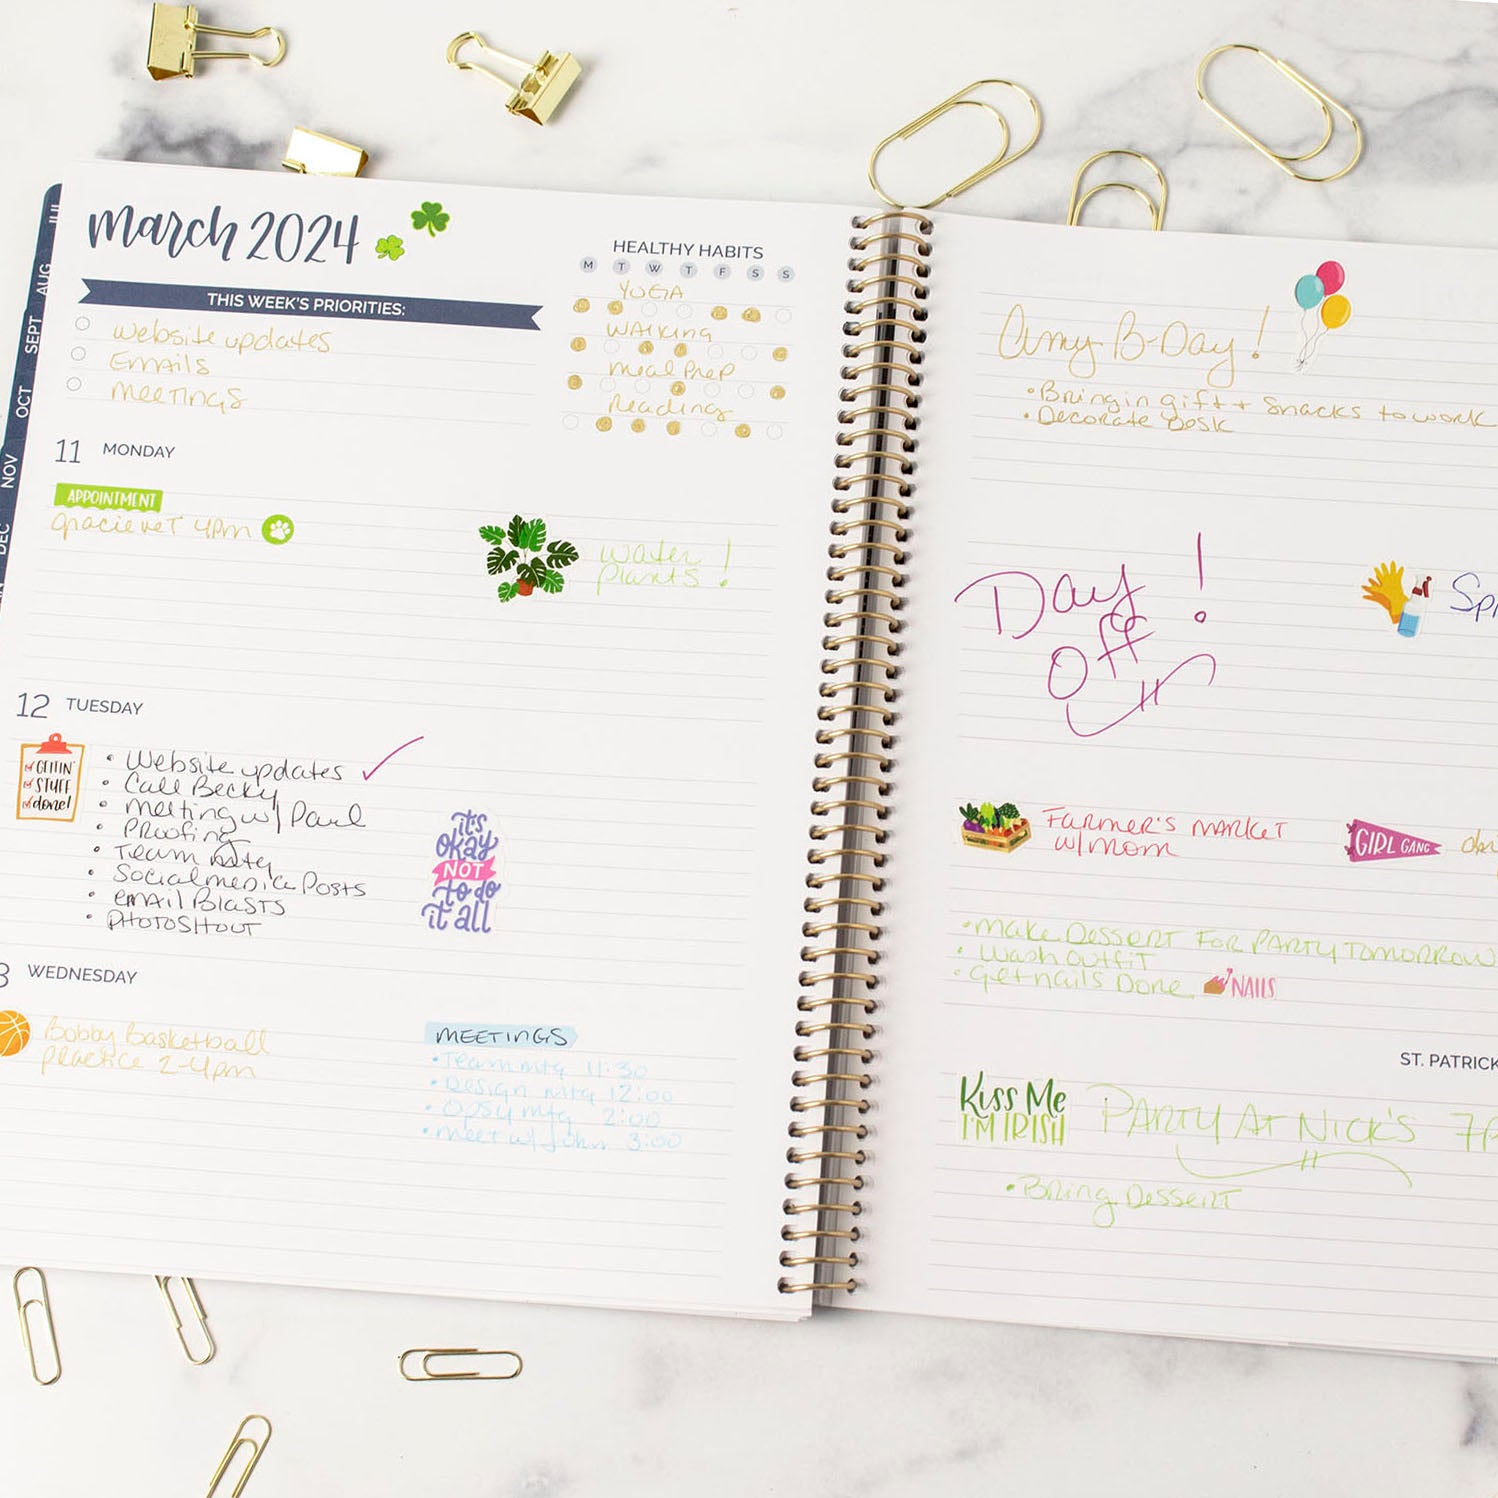 JUL
AUG
SEPT
OCT
NOV
DEC
March 2024
THIS WEEK'S PRIORITIES:
website updates
Emails
meetings
HEALTHY HABITS
M T W T F S S
YOGA
WALKING
meal Prep
Reading
11 MONDAY
APPOINTMENT
Gracie vet 4pm
water
plants!
12 TUESDAY
GETTIN'
STUFF
done!
• Website updates
• Call Becky
• meeting w/ Paul
• Proofing
• Team mtg
• Social media Posts
• email Blasts
• PHOTOSHOOT
it's
okay
NOT
to do
it all
3 WEDNESDAY
Bobby Basketball
practice 2-4pm
MEETINGS
• Team mtg 11:30
• Design mtg 12:00
• Opsy mtg 2:00
• meet w/ John 3:00
Amy B-Day!
• Bring in gift + snacks to work
• Decorate Desk
Day
Off!
Spr
Farmer's market
w/ mom
GIRL GANG
• make Dessert for PARTY TOMORROW
• wash outfit
• get nails Done
NAILS
ST. PATRICK
Kiss Me
I'M IRISH
PARTY AT NICK'S 7P
• Bring Dessert